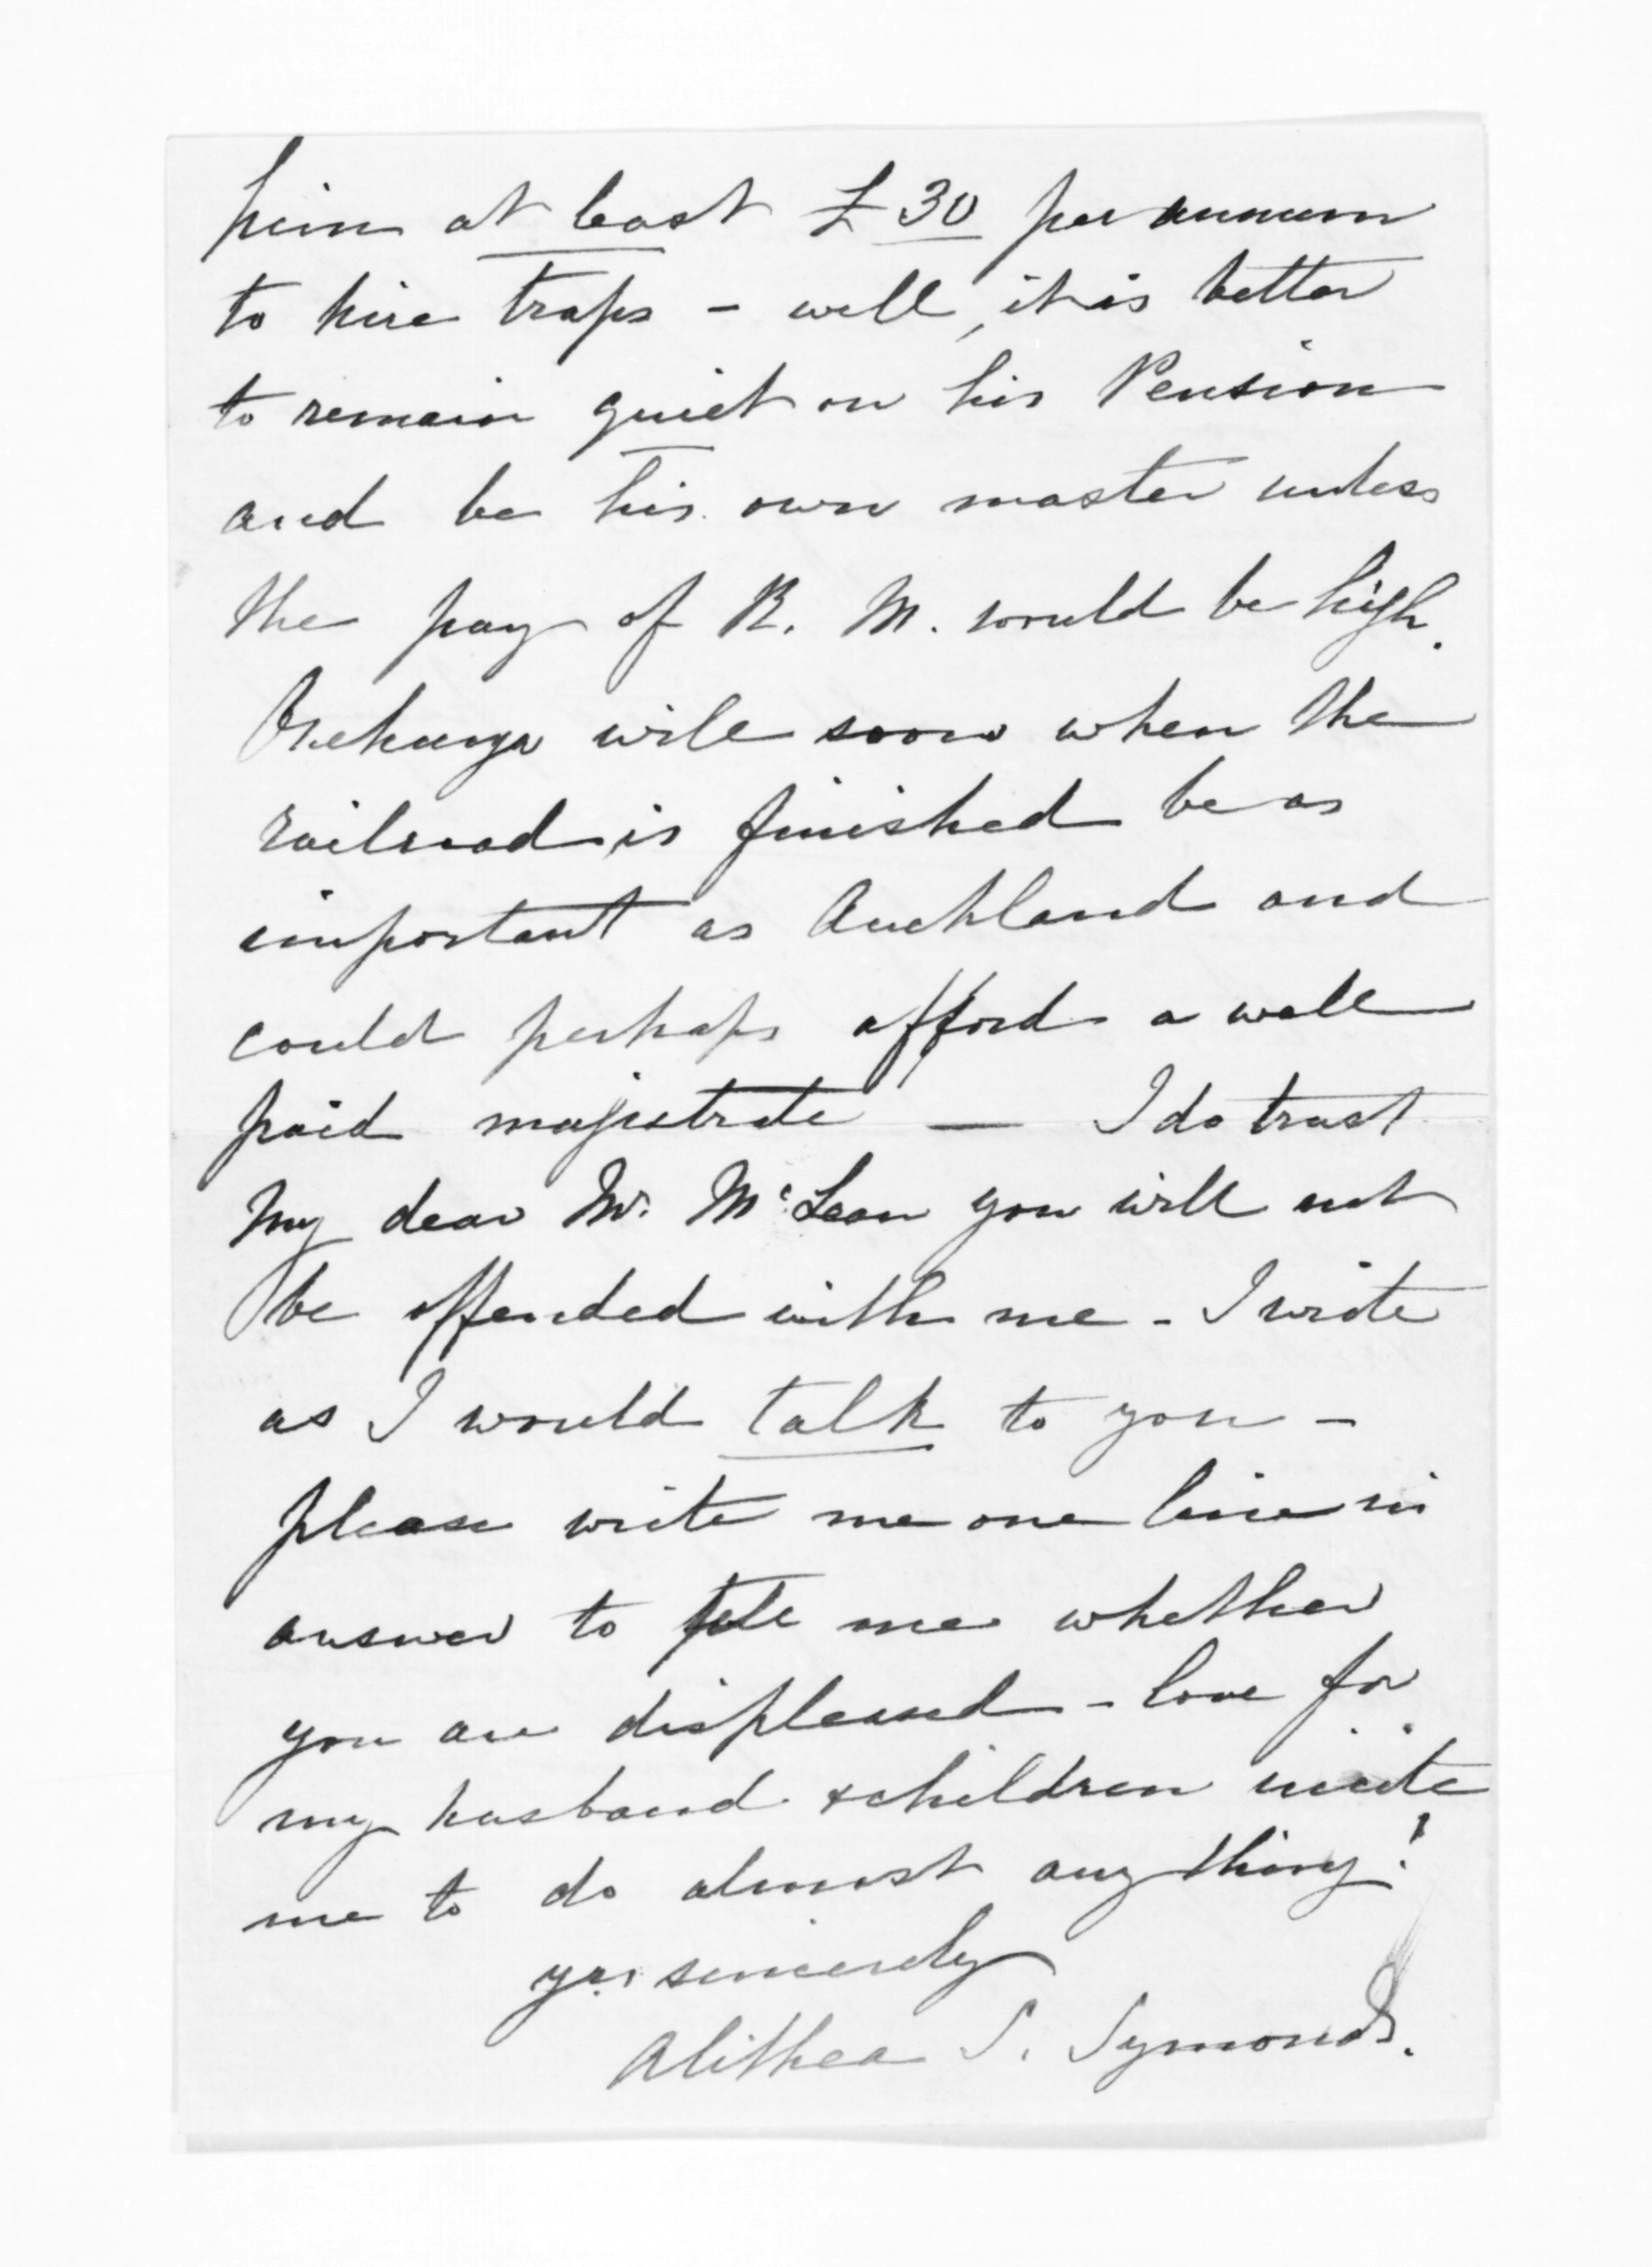 him at least £30 per annum
to hire traps - well, it is better
to remain quiet on his Pension
and be his own master unless
the pay of R. M. would be high.
Onehunga will soon when the
railroad is finished be as
important as Auckland and
could perhaps afford a well
paid magistrate — I do trust
my dear Mr. McLean you will not
be offended with me - I write
as I would talk to you -
please write me one line in
answer to tell me whether
you are displeased - love for
my husband & children incite
me to do almost any thing!
yrs sincerely
Alithea S. Symonds.